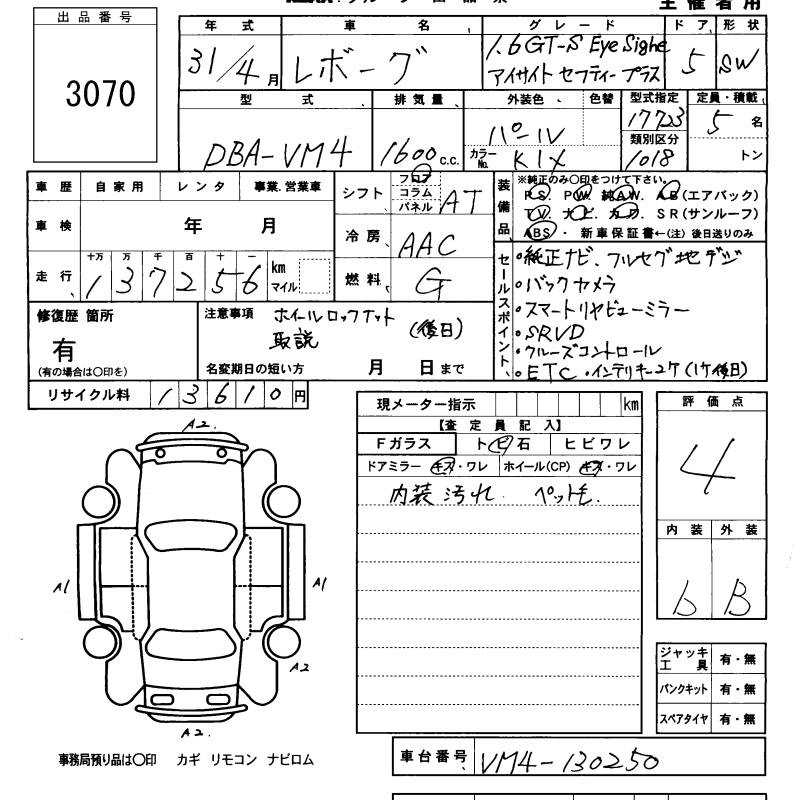 主催者用
出品番号
3070
年式 車名 グレード ドア 形状
31/4月 レボーグ 1.6GT-S EyeSight 5 SW
アイサイト セフティープラス
型式 排気量 外装色 色替 型式指定 定員・積載
DBA-VM4 1600c.c. パール 17723 5名
カラーNo. K1X 類別区分 1018 トン
車歴 自家用 レンタ 事業.営業車
車検 年 月
走行 十万 万 千 百 十 一
137256 km マイル
シフト フロア コラム パネル AT
冷房 AAC
燃料 G
装備品 ※純正のみ○印をつけて下さい。
PS. PW. 純AW. AB(エアバック)
TV. ナビ. カワ. SR(サンルーフ)
ABS・新車保証書←(注) 後日送りのみ
セールスポイント、
・純正ナビ、フルセグ地デジ
・バックカメラ
・スマートリヤビューミラー
・SRVD
・クルーズコントロール
・ETC ・インテリキー2ケ(1ケ後日)
修復歴 箇所
有
(有の場合は○印を)
注意事項 ホイールロックナット
取説 (後日)
名変期日の短い方 月 日まで
リサイクル料 13610円
現メーター指示 km
【査定員記入】
Fガラス トビ石 ヒビワレ
ドアミラー キズ・ワレ ホイール(CP) キズ・ワレ
内装汚れ. ペット毛.
評価点
4
内装 外装
b B
A2.
A1
A1
A2
A2.
ジャッキ工具 有・無
パンクキット 有・無
スペアタイヤ 有・無
事務局預り品は○印 カギ リモコン ナビロム
車台番号 VM4-130250